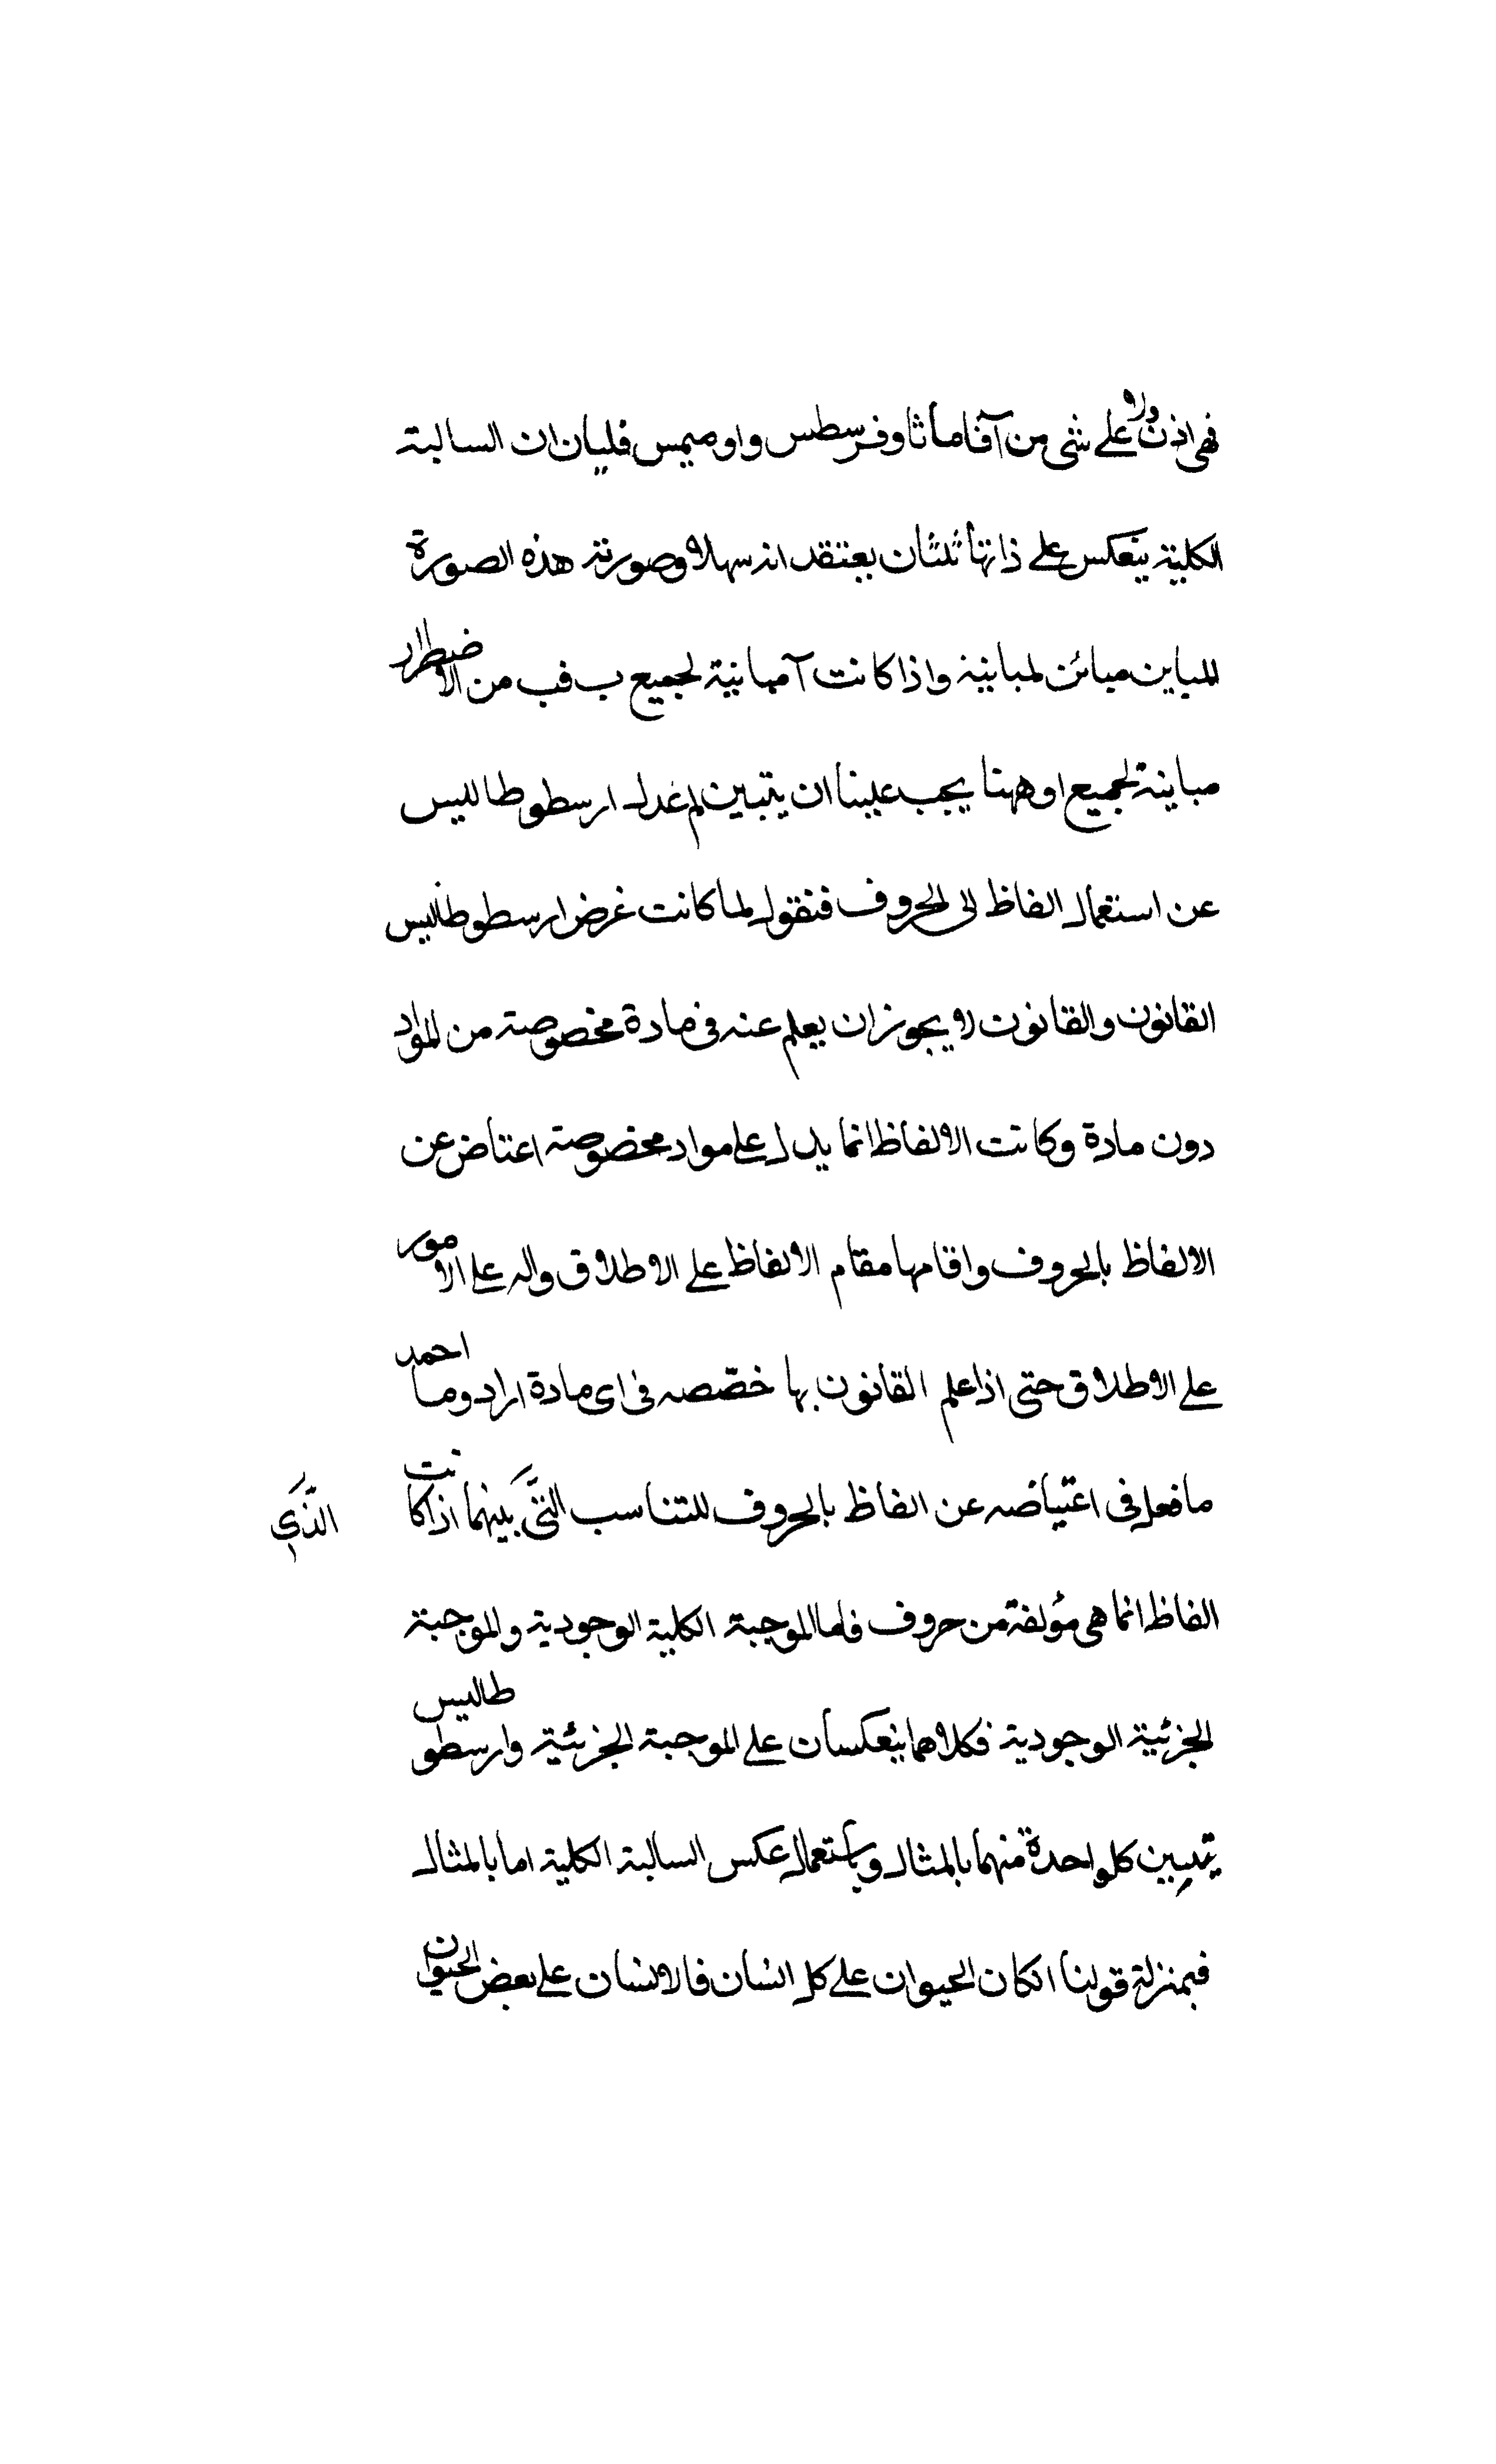 فهى اذن ولا على شى من آفاما ثاوفرسطس واوميمس فليان ان السالبة
الكلية ينعكس على ذاتها ثلثان يعتقد انه سهلا وصورته هذه الصورة
المباين مبائن لمباينة واذا كانت آ مباينة لجميع ب فب من الاضطرار
مباينة لجميع ا وههنا يجب علينا ان يتبين لم غدل ارسطوطاليس
عن استعمال الفاظ الى الحروف فنقول لما كانت غرض ارسطوطاليس
القانون والقانون لا يجوز ان يعلم عنه فى مادة مخصوصة من المواد
دون مادة وكانت الالفاظ انما يدل على مواد مخصوصة اعتاض عن
الالفاظ بالحروف واقامها مقام الالفاظ على الاطلاق واله على الامور
على الاطلاق حتى اذا علم القانون بها خصّصه فى اى مادة اراد وما احمد
ما فعل فى اعتياضه عن الفاظ بالحروف للتناسب التى بينهما اذا كانت
الذّي
الفاظ انما هى مؤلفة من حروف فاما الموجبة الكلية الوجودية والموجبة
الجزئية الوجودية فكلاهما ينعكسان على الموجبة الجزئية وارسطوطاليس
يتبين كل واحدة منهما بالمثال وباستعمال عكس السالبة الكلية اما بالمثال
فبمنزلة قولنا انكان الحيوان على كل انسان فالانسان على بعض الحيوان